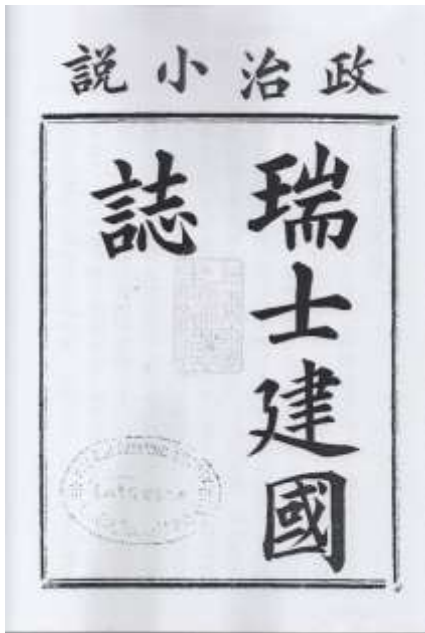 政治小説
瑞士建國
誌